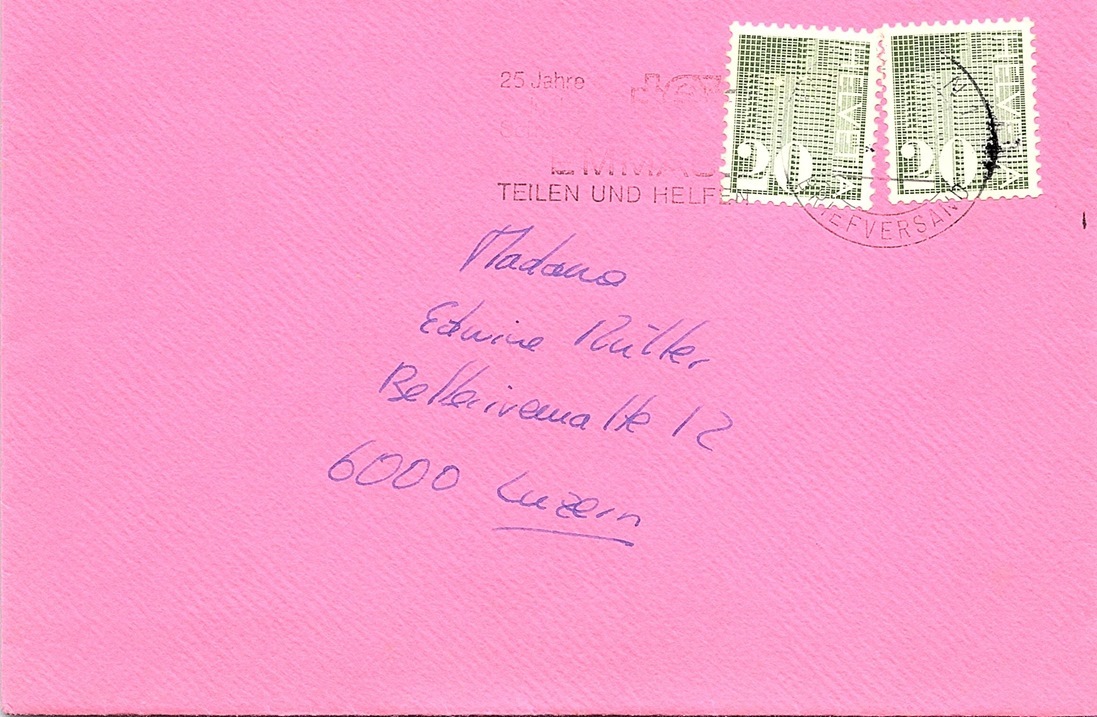 25 Jahre
EMMAUS
TEILEN UND HELFEN
HELVETIA
20
HELVETIA
20
BRIEFVERSAND
Madame
Edwine Rütter
12
6000 Luzern